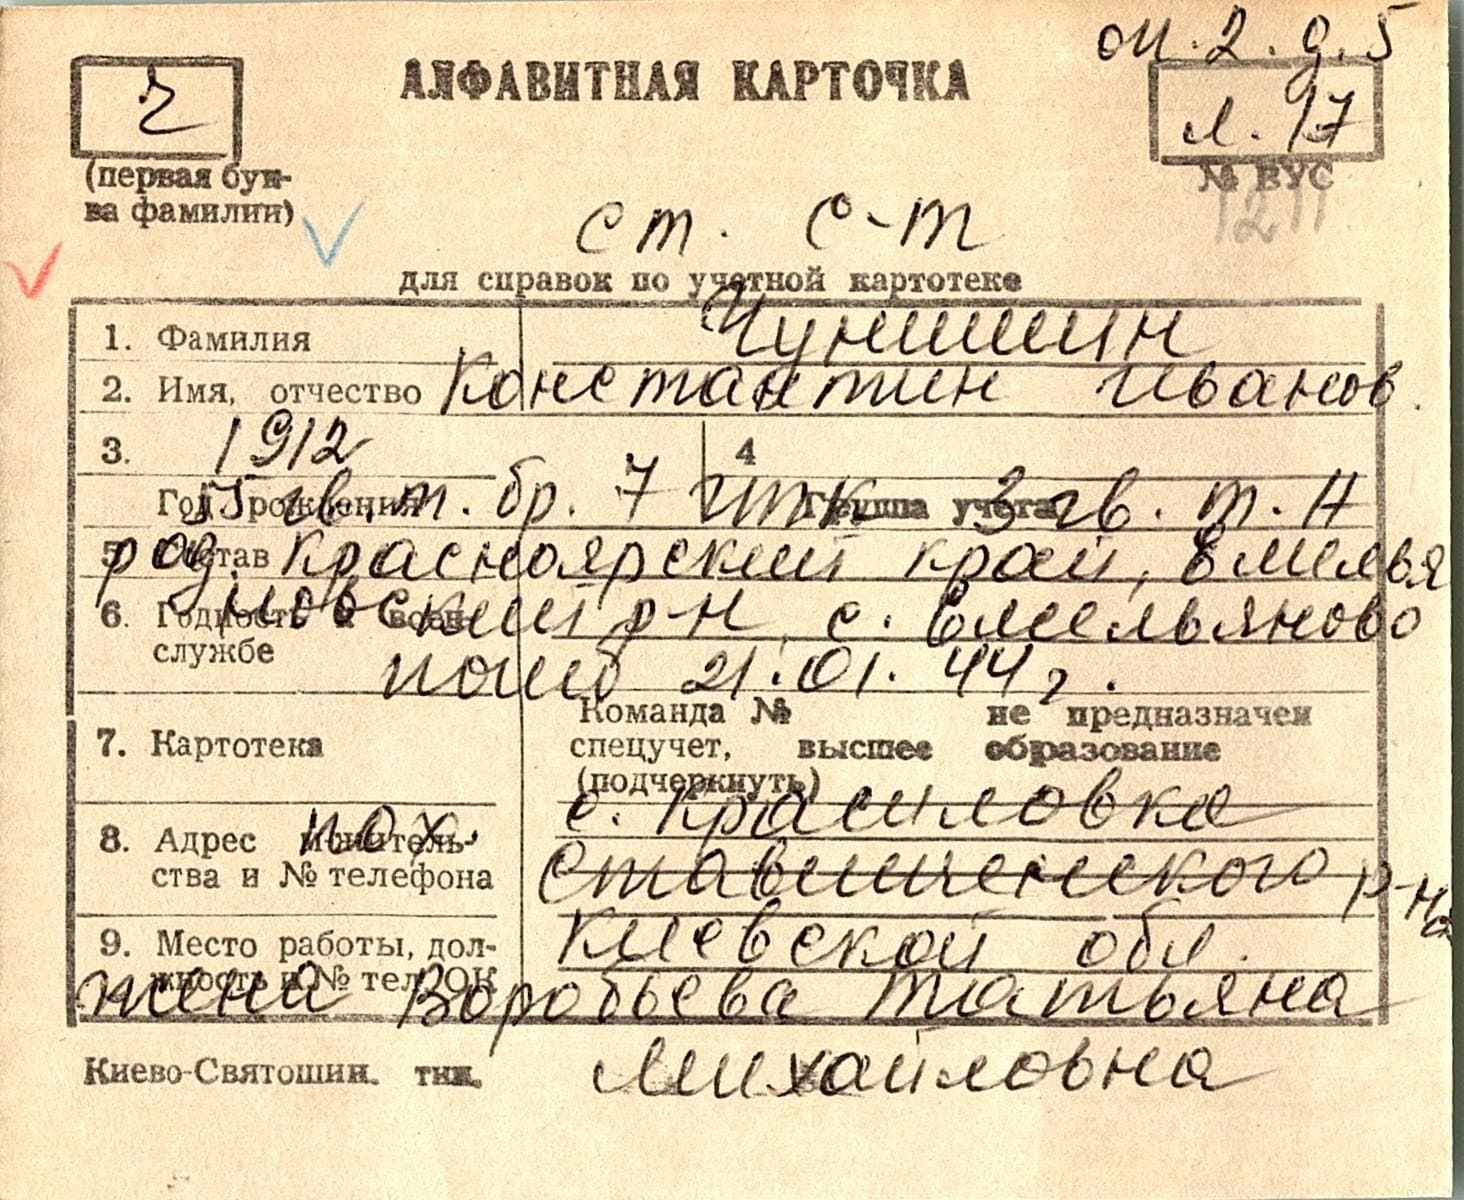 оп. 2. д. 5
Ч
АЛФАВИТНАЯ КАРТОЧКА
л. 97
(первая бук-
ва фамилии)
№ ВУС
1211
ст. с-т
для справок по учетной картотеке
1. Фамилия Чуншин
2. Имя, отчество Константин Иванов.
3. 1912 4
Год рождения Группа учета
гв. т. бр. 7 гтк 3 гв. т. А
5. Состав
род. Красноярский край, Емелья
6. Годность к воен.
новский р-н, с. Емельяново
службе
погиб 21.01.44 г.
Команда № не предназначен
7. Картотека спецучет, высшее образование
(подчеркнуть)
с. Красиловка
8. Адрес житель-
пох.
ства и № телефона
Ставищенского р-на
9. Место работы, дол-
Киевской обл.
жность и № тел. ОК
жена Воробьева Татьяна
Киево-Святошин. тип. Михайловна